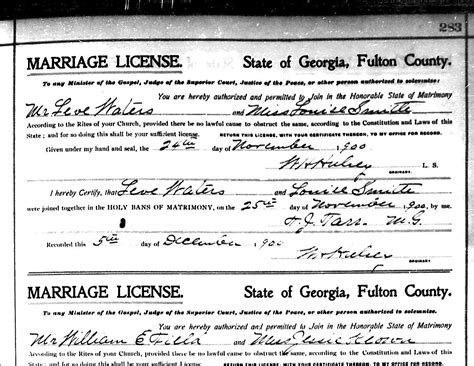 283
MARRIAGE LICENSE. State of Georgia, Fulton County.
To any Minister of the Gospel, Judge of the Superior Court, Justice of the Peace, or other person authorized to solemnize:
You are hereby authorized and permitted to Join in the Honorable State of Matrimony
Mr Leve Waters and Miss Louise Smith
According to the Rites of your Church, provided there be no lawful cause to obstruct the same, according to the Constitution and Laws of this
State; and for so doing this shall be your sufficient license. RETURN THIS LICENSE, WITH YOUR CERTIFICATE THEREON, TO MY OFFICE FOR RECORD.
Given under my hand and seal, the 24th day of November, 1900
W H Hulsey L. S.
I hereby Certify, that Leve Waters and Louise Smith
were joined together in the HOLY BANS OF MATRIMONY, by me, on the 25th day of November, 1900, by me,
J. M. G.
Recorded this 5th day of December 1900
W H Hulsey
ORDINARY.
MARRIAGE LICENSE. State of Georgia, Fulton County.
To any Minister of the Gospel, Judge of the Superior Court, Justice of the Peace, or other person authorized to solemnize:
You are hereby authorized and permitted to Join in the Honorable State of Matrimony
Mr William E and Miss Jessie
According to the Rites of your Church, provided there be no lawful cause to obstruct the same, according to the Constitution and Laws of this